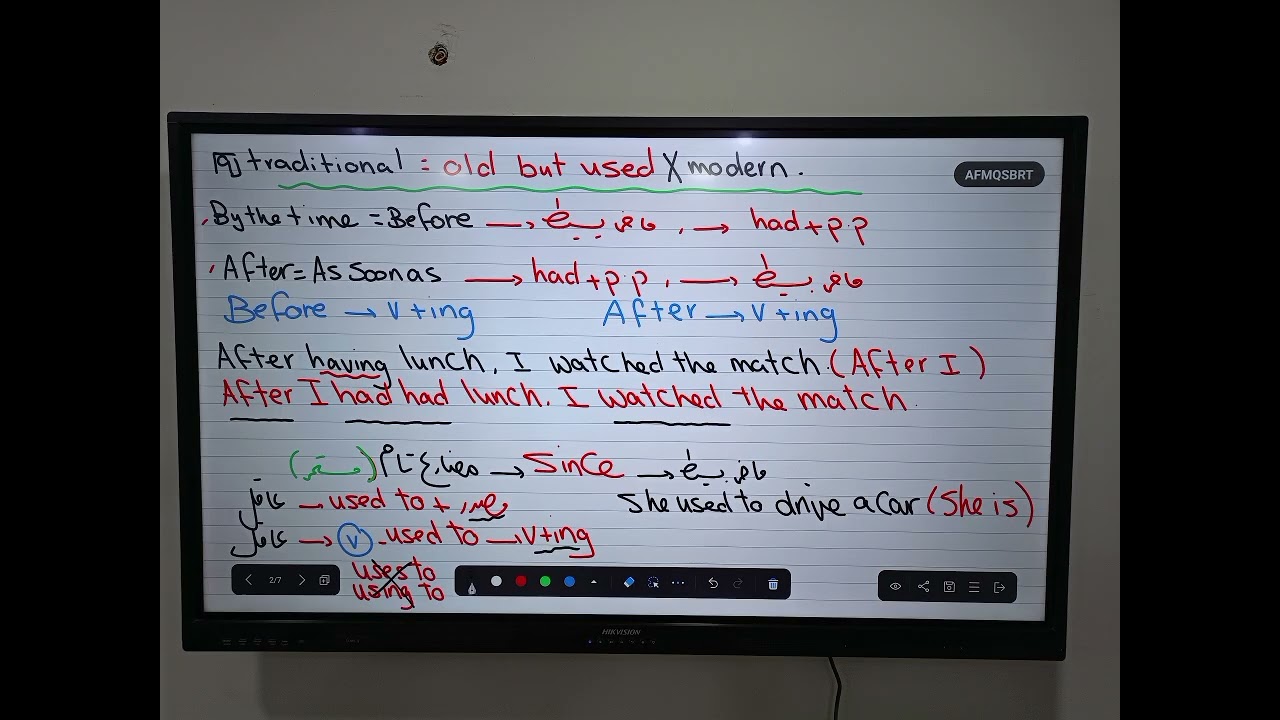 traditional = old but used X modern.
AFMQSBRT
By the time = Before → ماضى بسيط , → had + p.p
After = As soon as → had + p.p , → ماضى بسيط
Before → V + ing After → V + ing
After having lunch, I watched the match. (After I)
After I had had lunch. I watched the match.
مضارع تام → Since → ماضى بسيط
عاقل → used to + مصدر She used to drive a car (She is)
عاقل → V. used to → V + ing
uses to
using to
2/7
HIKVISION